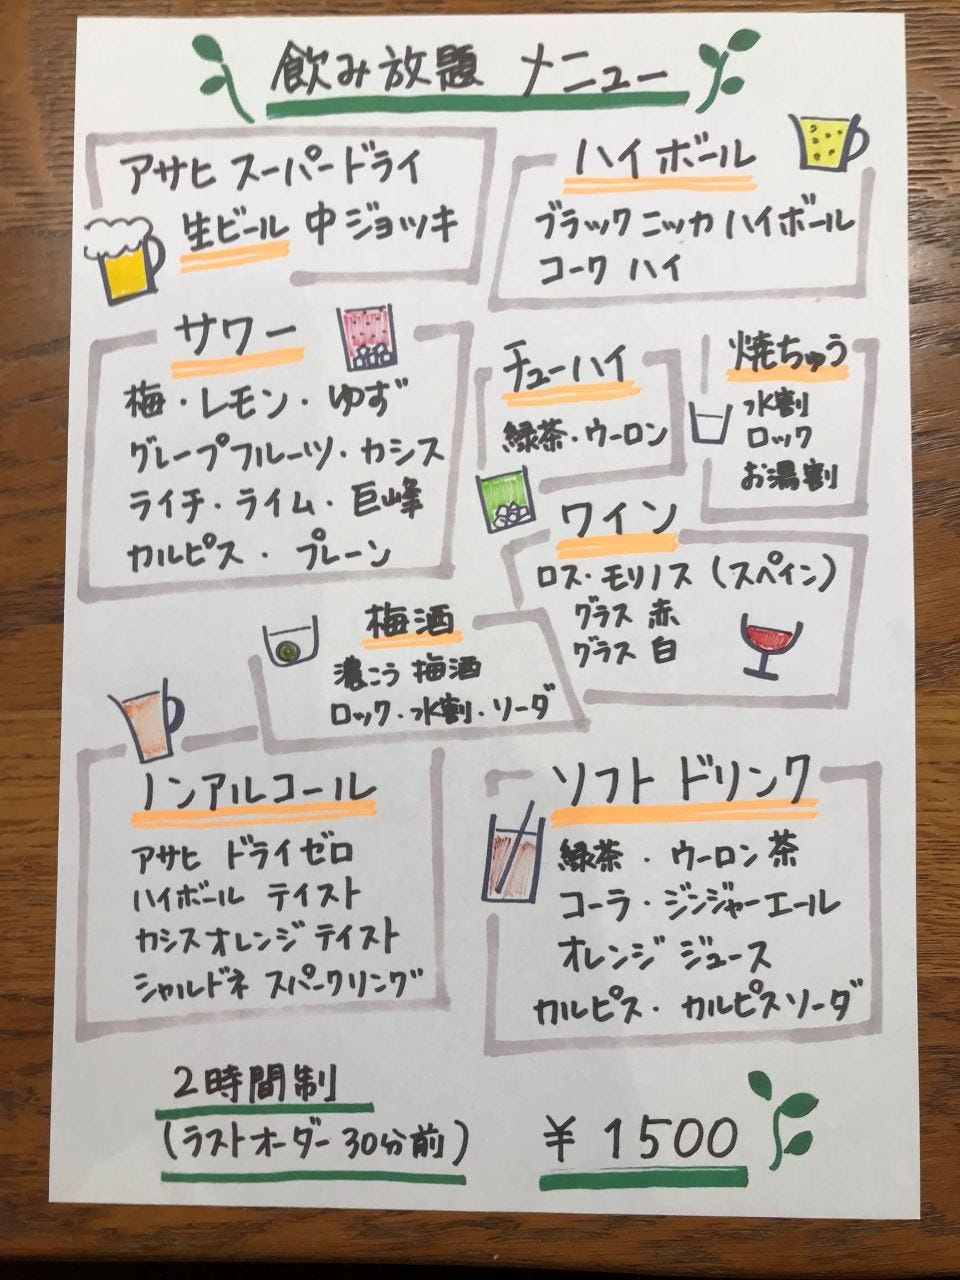 飲み放題 メニュー
アサヒ スーパードライ
生ビール 中ジョッキ
ハイボール
ブラックニッカ ハイボール
コーク ハイ
サワー
梅・レモン・ゆず
グレープフルーツ・カシス
ライチ・ライム・巨峰
カルピス・プレーン
チューハイ
緑茶・ウーロン
焼ちゅう
水割
ロック
お湯割
ワイン
ロス・モリノス (スペイン)
グラス 赤
グラス 白
梅酒
濃こう 梅酒
ロック・水割・ソーダ
ノンアルコール
アサヒ ドライゼロ
ハイボール テイスト
カシスオレンジ テイスト
シャルドネ スパークリング
ソフト ドリンク
緑茶・ウーロン茶
コーラ・ジンジャーエール
オレンジ ジュース
カルピス・カルピスソーダ
2時間制
(ラストオーダー 30分前)
¥ 1500